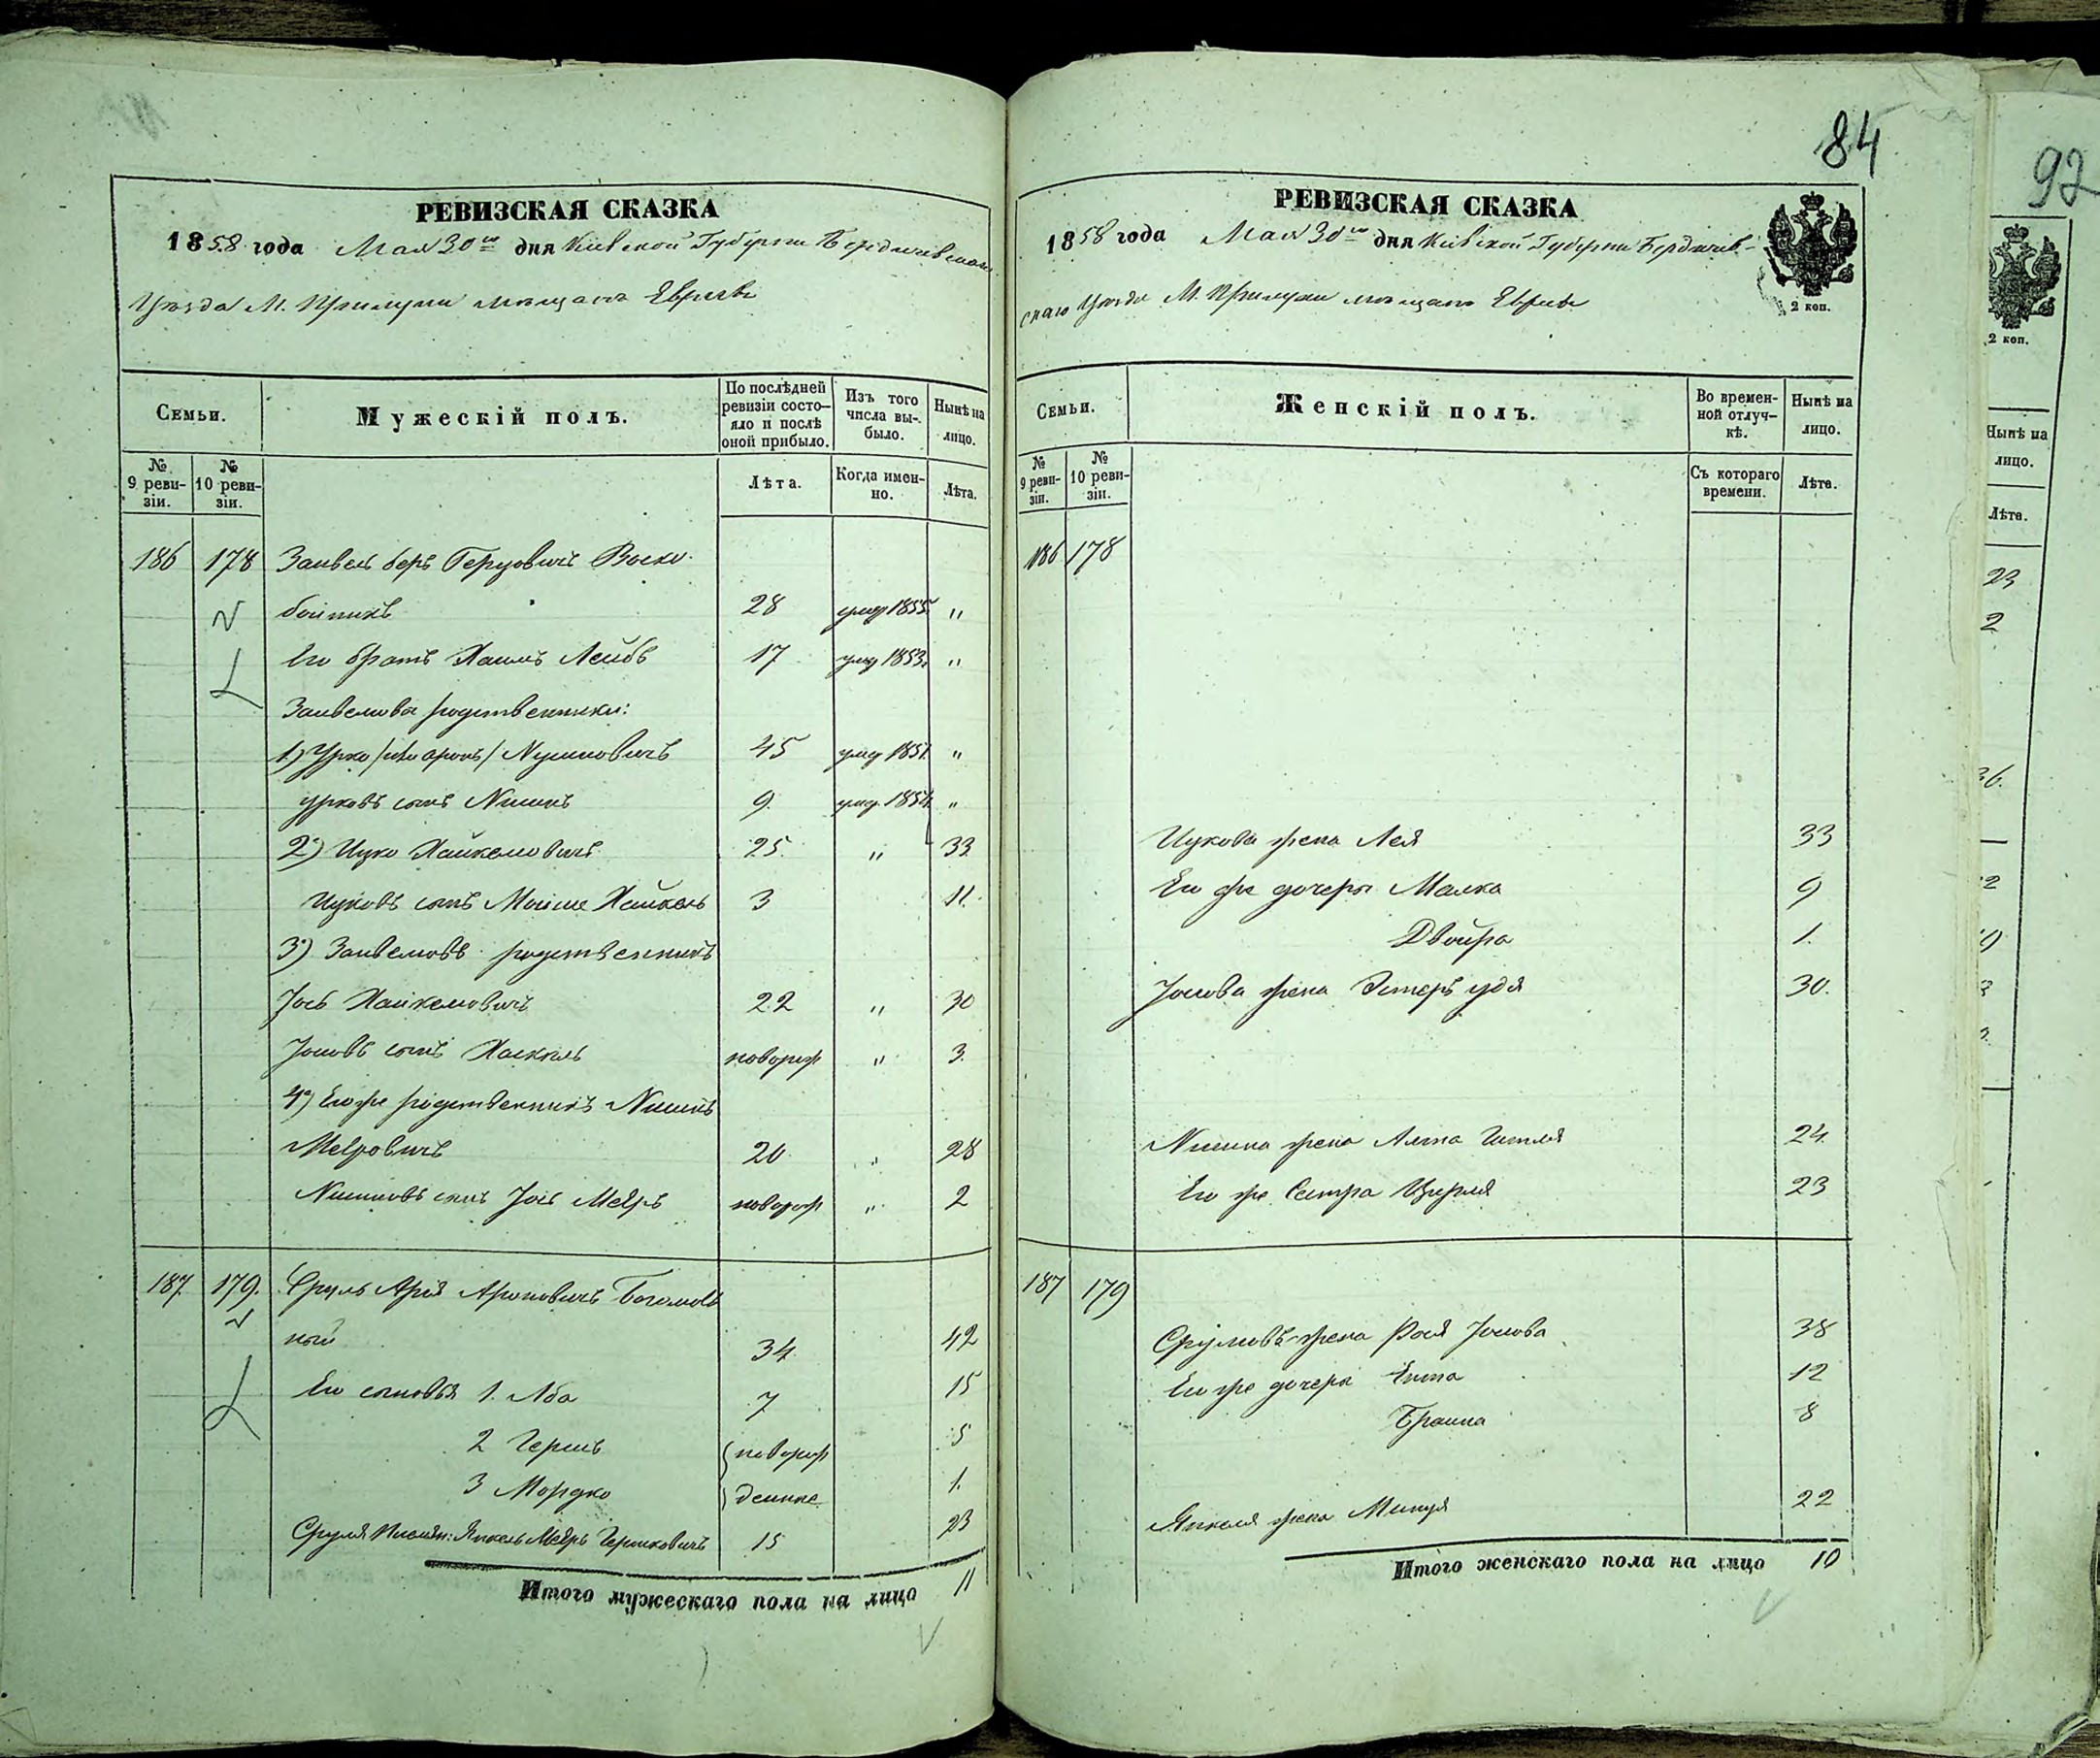 84
92
РЕВИЗСКАЯ СКАЗКА
1858 года Мая 30го дня Кіевской Губерніи Бердичевскаго
Уѣзда М. Прилуки мѣщанъ Евреевъ
Семьи.
Мужескій полъ.
По послѣдней ревизіи состо-
яло и послѣ оной прибыло.
Изъ того числа вы-
было.
Нынѣ на лицо.
№ 9 реви-
зіи.
№ 10 реви-
зіи.
Лѣта.
Когда имен-
но.
Лѣта.
186 178 Занвель беръ Герцовичъ Воско-
бойникъ 28 умер 1855. "
Его братъ Хаимъ Лейбъ 17 умер 1853. "
Занвелова родственники:
1) Урко /или аронъ/ Нушновичъ 45 умер 1857. "
Урковъ сынъ Нисинъ 9. умер. 1854. "
2) Ицко Хайкелевичъ 25. " 33.
Ицковъ сынъ Мойше Хайкель 3 11.
3) Занвеловъ родственникъ
Іось Хайкелевичъ 22 " 30
Іосіовъ сынъ Хаскель новорож " 3.
4) Его же родственникъ Нисинъ
Меѣровичъ 20 " 28
Нисиновъ сынъ Іось Меѣръ новорож " 2
187. 179. Сруль Арія Ароновичъ Богомоль
ный 34. 42
Его сыновья 1. Аба 7 15
2 Гершъ новорож 5
3 Мордко денные 1.
Сруля племян: Янкель Меѣръ Гершковичъ 15 23
Итого мужескаго пола на лицо 11
РЕВИЗСКАЯ СКАЗКА
1858 года Мая 30го дня Кіевской Губерніи Бердичев-
скаго Уѣзда М. Прилуки мѣщанъ Евреевъ
2 коп.
Семьи.
Женскій полъ.
Во времен-
ной отлуч-
кѣ.
Нынѣ на лицо.
№ 9 реви-
зіи.
№ 10 реви-
зіи.
Съ котораго времени.
Лѣта.
186 178
Ицкова жена Лея 33
Его же дочери Малка 9
Двойра 1.
Іосіова жена Эстеръ удя 30.
Нисина жена Алта Гитля 24.
Его же Сестра Цирля 23
187 179
Срулева жена Рося Іосіова 38
Его же дочери Ента 12
Браина 8
Янкеля жена Минця 22
Итого женскаго пола на лицо 10
2 коп.
Нынѣ на лицо.
Лѣта.
23
2